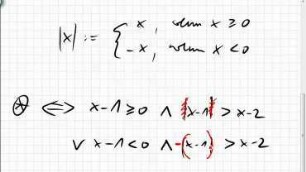 |x| := { x, wenn x ≥ 0
-x, wenn x < 0
⊛ ⇔ x-1 ≥ 0 ∧ |x-1| > x-2
∨ x-1 < 0 ∧ -(x-1) > x-2